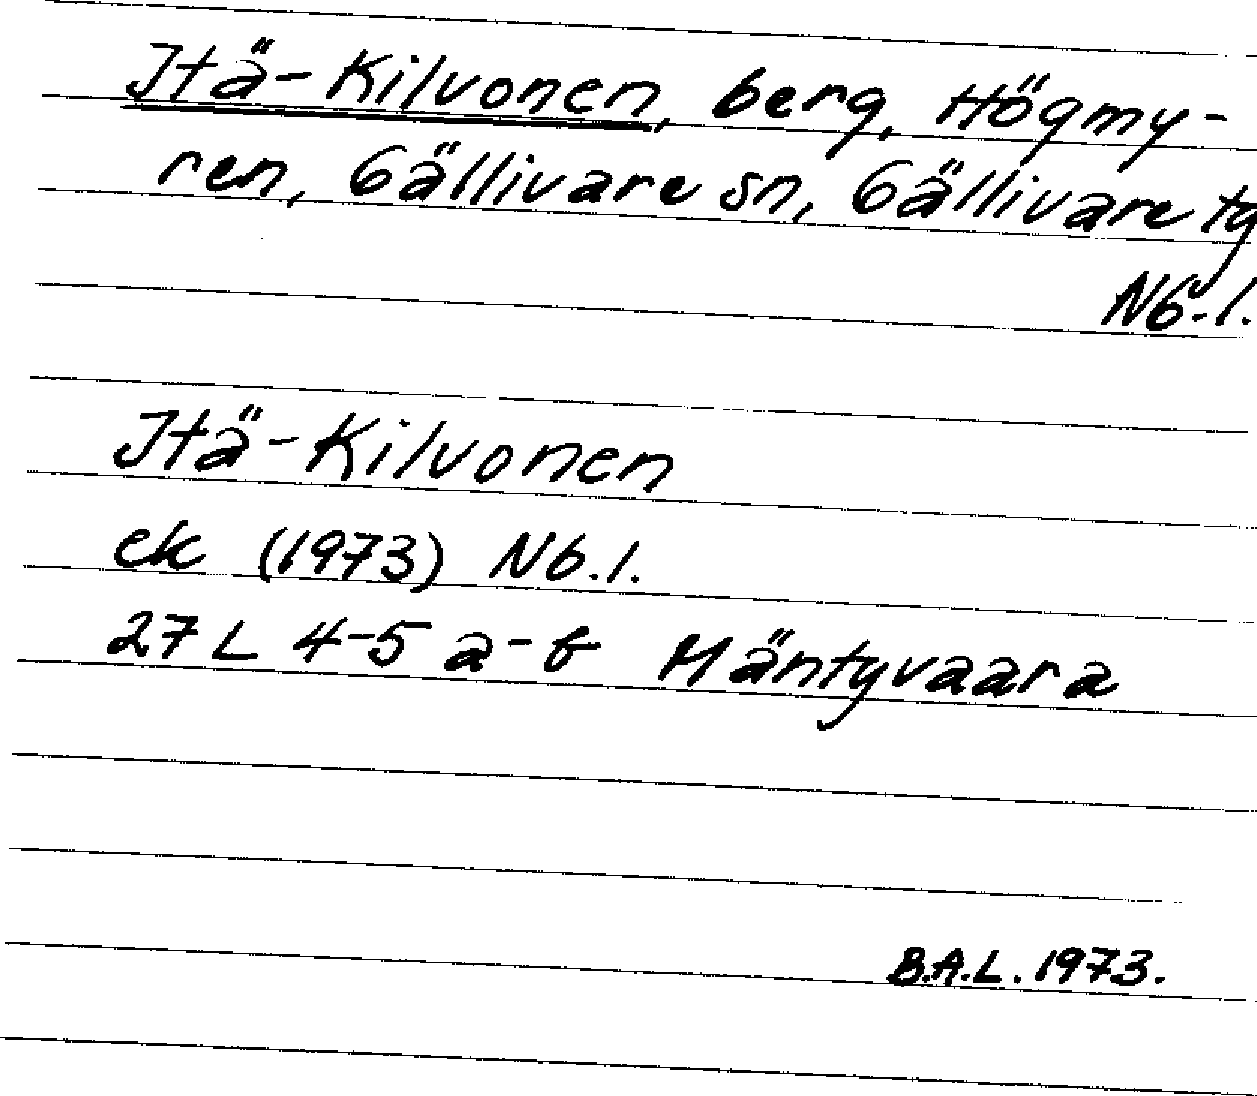 Itä-Kilvonen, berg, Högmy-
ren, Gällivare sn, Gällivare tg
Nb.l.
Itä-Kilvonen
ek (1973) Nb.l.
27 L 4-5 a-b Mäntyvaara
B.A.L. 1973.